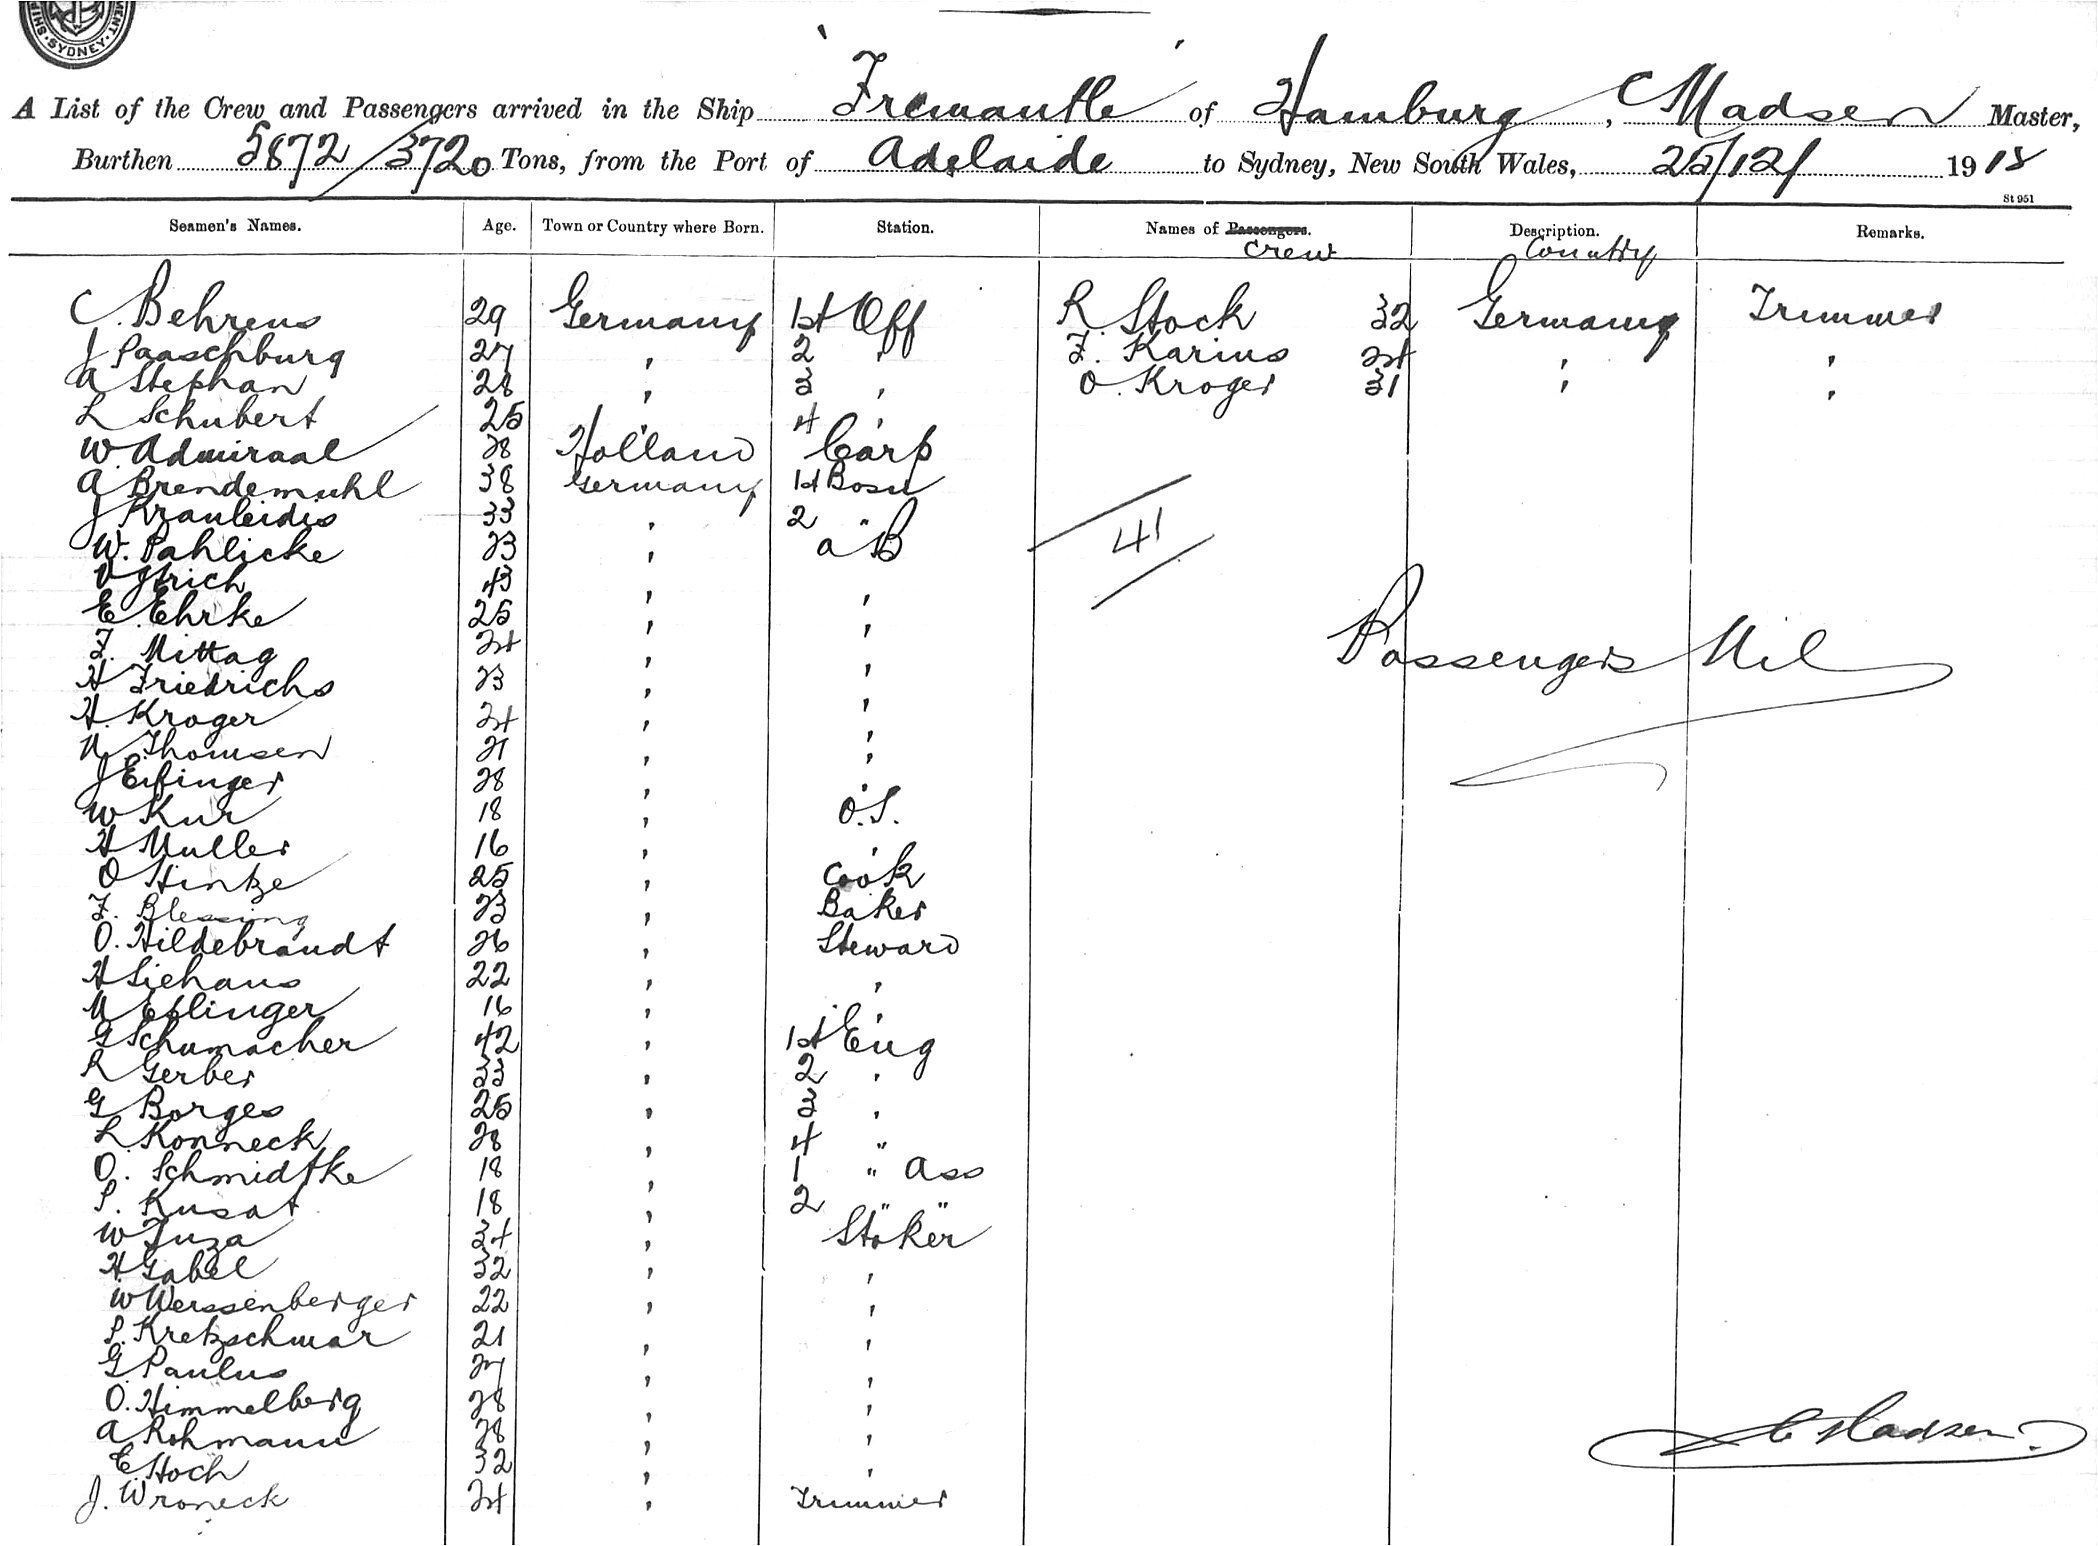 SYDNEY
A List of the Crew and Passengers arrived in the Ship 'Fremantle' of Hamburg, C Madsen Master,
Burthen 5872/3720 Tons, from the Port of Adelaide to Sydney, New South Wales, 25/12/ 19
St 951
Seamen's Names. Age. Town or Country where Born. Station. Names of Passengers. Crew Description. Country Remarks.
C. Behrens 29 Germany 1st Off R. Stock 32 Germany Trimmer
J Paaschburg 27 " 2 " F. Karius 24 " "
A Stephan 28 " 3 " O. Kroger 31 " "
L Schubert 25 " 4 "
W. Admiraal 28 Holland Carp
A Brendemuhl 38 Germany 1st Bosn
J Krauleidis 33 " 2 "
W. Pahlicke 23 " A B
43 " "
E. Ehrke 25 " "
F. Mittag 24 " "
H Friedrichs 23 " "
H. Kroger 24 " "
N. Thomsen 21 " "
J 28 " "
W Kur 18 " O.S.
H Muller 16 " "
O Hintze 25 " Cook
F. Blessing 23 " Baker
O. Hildebrandt 26 " Steward
H Siehaus 22 " "
M Eflinger 16 " "
G Schumacher 42 " 1st Eng
R Gerber 33 " 2 "
G Borges 25 " 3 "
L. Konneck 28 " 4 "
O. Schmidtke 18 " 1 " Ass
P. Kusat 18 " 2 " "
W Tuza 34 " Stoker
H. Gabel 32 " "
W Werssenberger 22 " "
P. Kretzschmar 21 " "
G. Paulus 27 " "
O. Himmelberg 28 " "
A Rohmann 28 " "
E. Hoch 32 " "
J. Wroneck 24 " Trimmer
41
Passengers Nil
C Madsen.